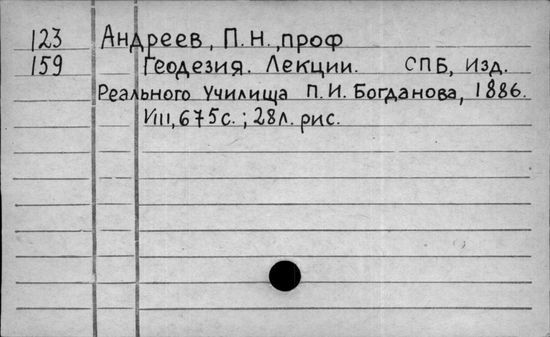 123 Андреев, П.Н., проф
159 Геодезия. Лекции. СПБ, Изд.
Реального Училища П.И. Богданова, 1886.
VIII, 675с.; 28л. рис.